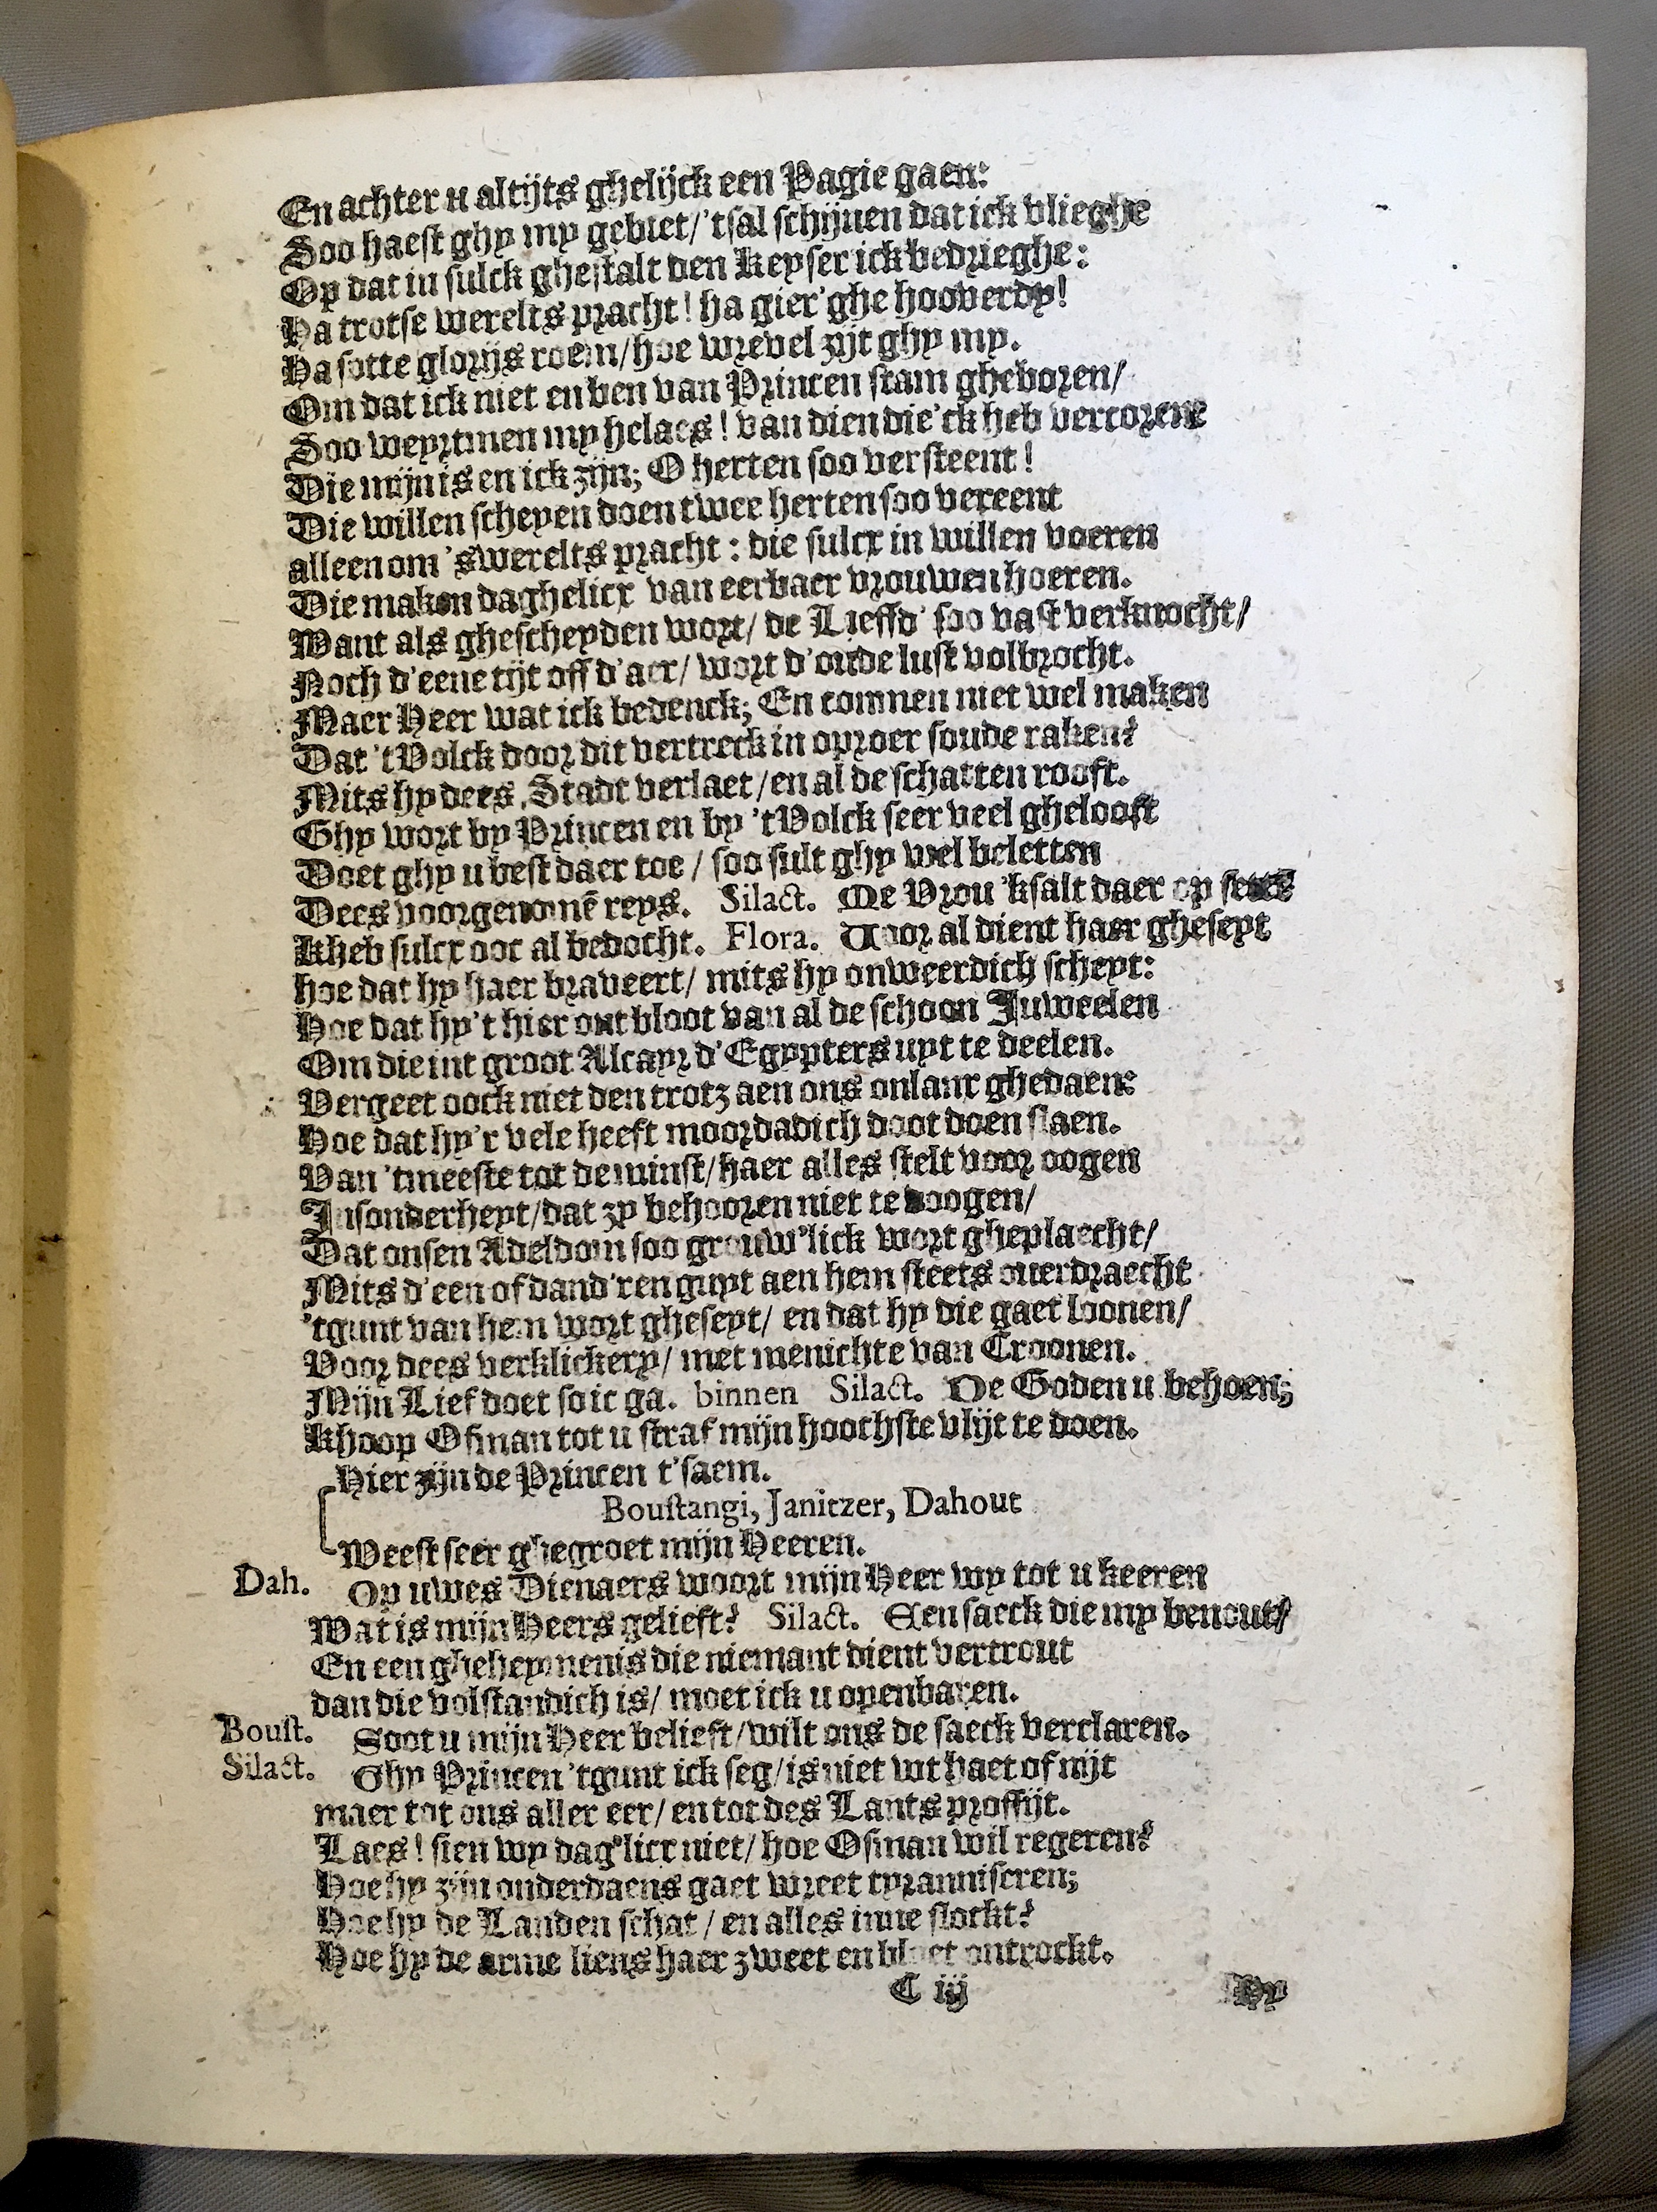 En achter u altijts ghelijck een Pagie gaen:
Soo haest ghy my gebiet/ 'tsal schijnen dat ick vlieghe
Op dat in sulck ghestalt den Keyser ick bedrieghe:
Ha trotse werelts pracht! ha gier'ghe hooverdy!
Ha sotte glorijs roem/ hoe wrevel zijt ghy my.
Om dat ick niet en ben van Princen stam gheboren/
Soo weyrtmen my helaes! van dien die 'ck heb vercorene
Die mijn is en ick zijn; O herten soo versteent!
Die willen scheyen doen twee herten soo vereent
alleen om 'swerelts pracht: die sulcx in willen voeren
Die maken daghelicx van eerbaer vrouwen hoeren.
Want als ghescheyden wort/ de Lieffd' soo vast verknocht/
Noch d'eene tijt off d'aer/ wort d'oude lust volbrocht.
Maer Heer wat ick bedenck; En connen niet wel maken
Dat 't Volck door dit vertreck in oproer soude raken?
Mits hy dees Stadt verlaet/ en al de schatten rooft.
Ghy wort by Princen en by 't Volck seer veel ghelooft
Doet ghy u best daer toe/ soo sult ghy wel beletten
Dees voorgenomē reys. Silact. Me Vrou 'ksalt daer op sette
Kheb sulcx ooc al bedocht. Flora. Voor al dient haer gheseyt
hoe dat hy haer braveert/ mits hy onweerdich scheyt:
Hoe dat hy't hier ontbloot van al de schoon Juweelen
Om die int groot Alcayr d'Egypters uyt te deelen.
Vergeet oock niet den trotz aen ons onlanx ghedaen:
Hoe dat hy'r vele heeft moordadich doot doen slaen.
Van 'tmeeste tot de minst/ haer alles stelt voor oogen
Insonderheyt/ dat zy behooren niet te doogen/
Dat onsen Adeldom soo grouw'lick wort gheplaecht/
Mits d'een of dand'ren guyt aen hem steets overdraecht
'tgunt van hem wort gheseyt/ en dat hy die gaet loonen/
Voor dees verklickery/ met menichte van Croonen.
Mijn Lief doet so ic ga. binnen Silact. De Goden u behoen;
Khoop Osman tot u straf mijn hoochste vlijt te doen.
Hier zijn de Princen t'saem.
Boustangi, Janitzer, Dahout
Weest seer ghegroet mijn Heeren.
Dah. Op uwes Dienaers woort mijn Heer wy tot u keeren
Wat is mijn Heers gelieft? Silact. Een saeck die my benout/
En een gheheymenis die niemant dient vertrout
dan die volstandich is/ moet ick u openbaren.
Boust. Soot u mijn Heer belieft/ wilt ons de saeck verclaren.
Silact. Ghy Princen 'tgunt ick seg/ is niet wt haet of nijt
maer tot ons aller eer/ en tot des Lants proffijt.
Laes! sien wy dag'licx niet/ hoe Osman wil regeren?
Hoe hy zijn onderdaens gaet wreet tyranniseren;
Hoe hy de Landen schat/ en alles inne slockt?
Hoe hy de arme liens haer zweet en bloet ontrockt.
C iij
Hy